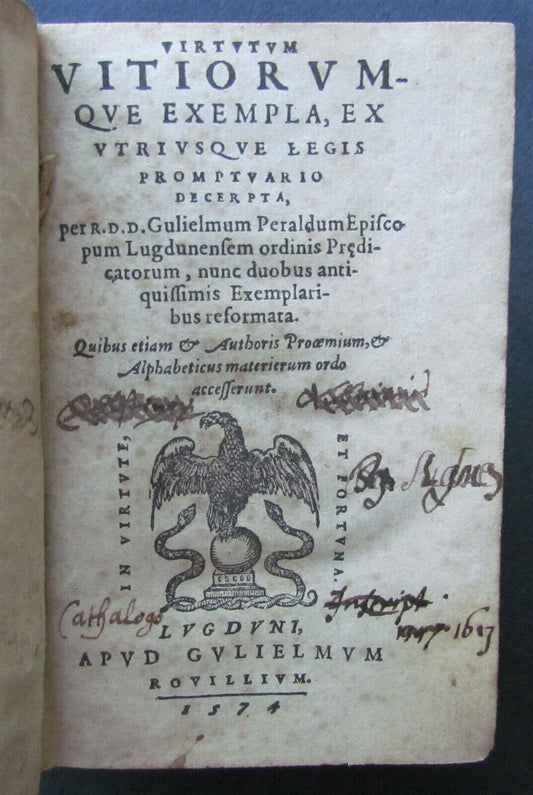 VIRTVTVM
VITIORVM-
QVE EXEMPLA, EX
VTRIVSQVE LEGIS
PROMPTVARIO
DECERPTA,
per R.D.D. Gulielmum Peraldum Episco
pum Lugdunensem ordinis Prędi-
catorum, nunc duobus anti-
quissimis Exemplari-
bus reformata.
Quibus etiam & Authoris Proœmium, &
Alphabeticus materierum ordo
accesserunt.
IN VIRTVTE,
ET FORTVNA.
Cathalogo
Inscript.
LVGDVNI,
APVD GVLIELMVM
ROVILLIVM.
1574